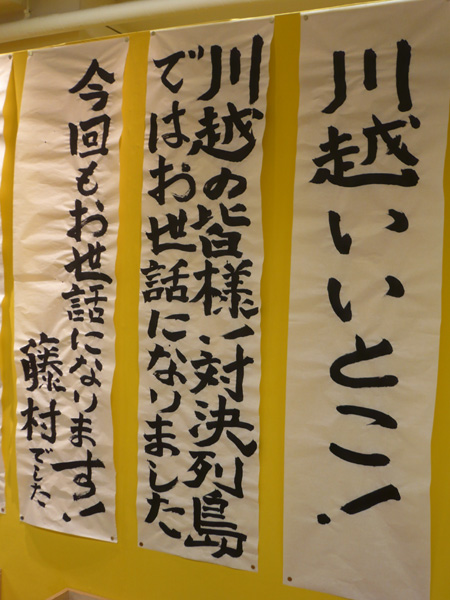 川越いいとこ!
川越の皆様!対決列島
ではお世話になりました
今回もお世話になります!
藤村でした